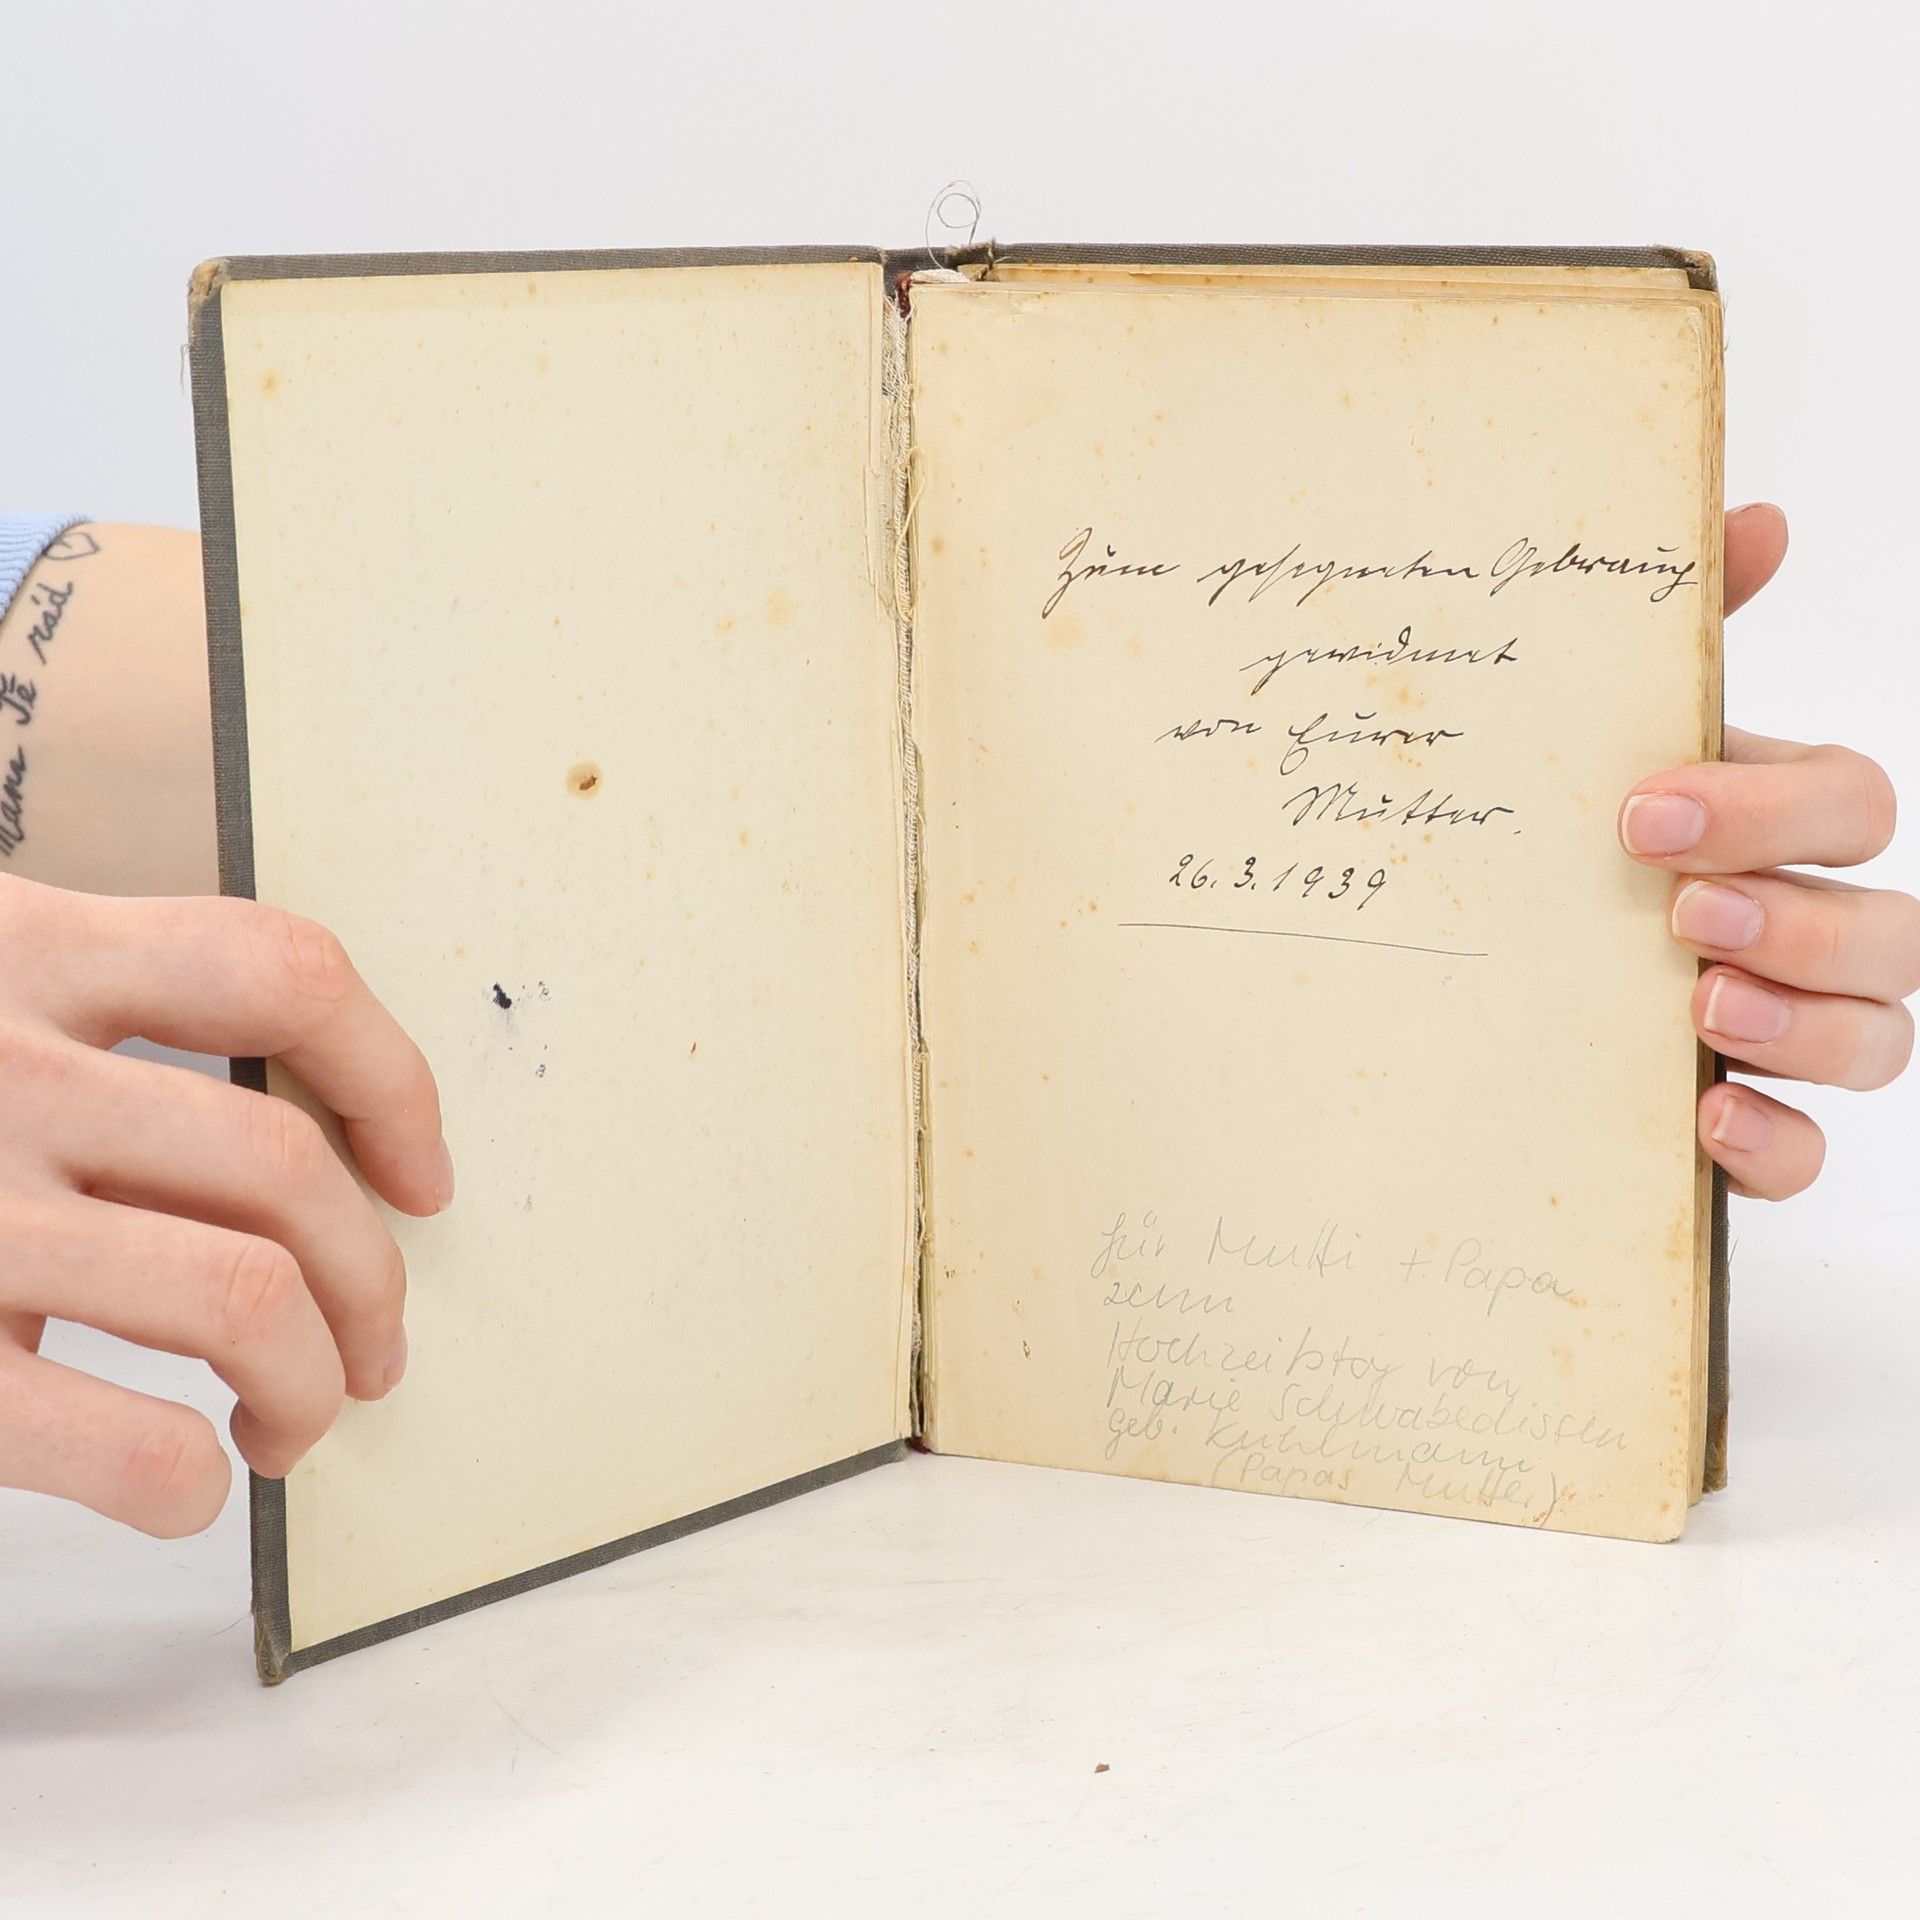 Mama Tě rád
Zum gesegneten Gebrauch
gewidmet
von Eurer
Mutter.
26.3.1939
für Mutti + Papa
zum
Hochzeitstag von
Marie Schwabedissen
geb. Kuhlmann
(Papas Mutter)